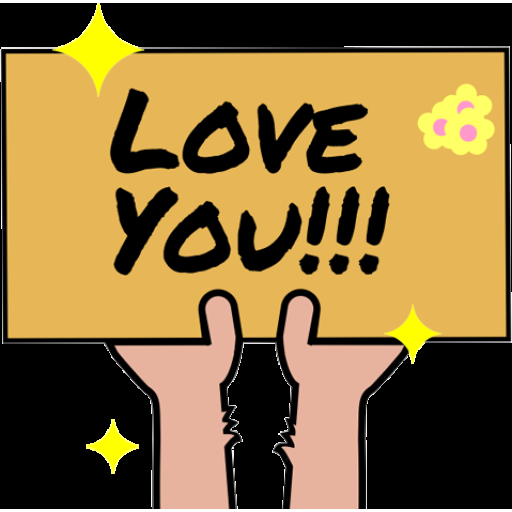 LOVE
YOU!!!